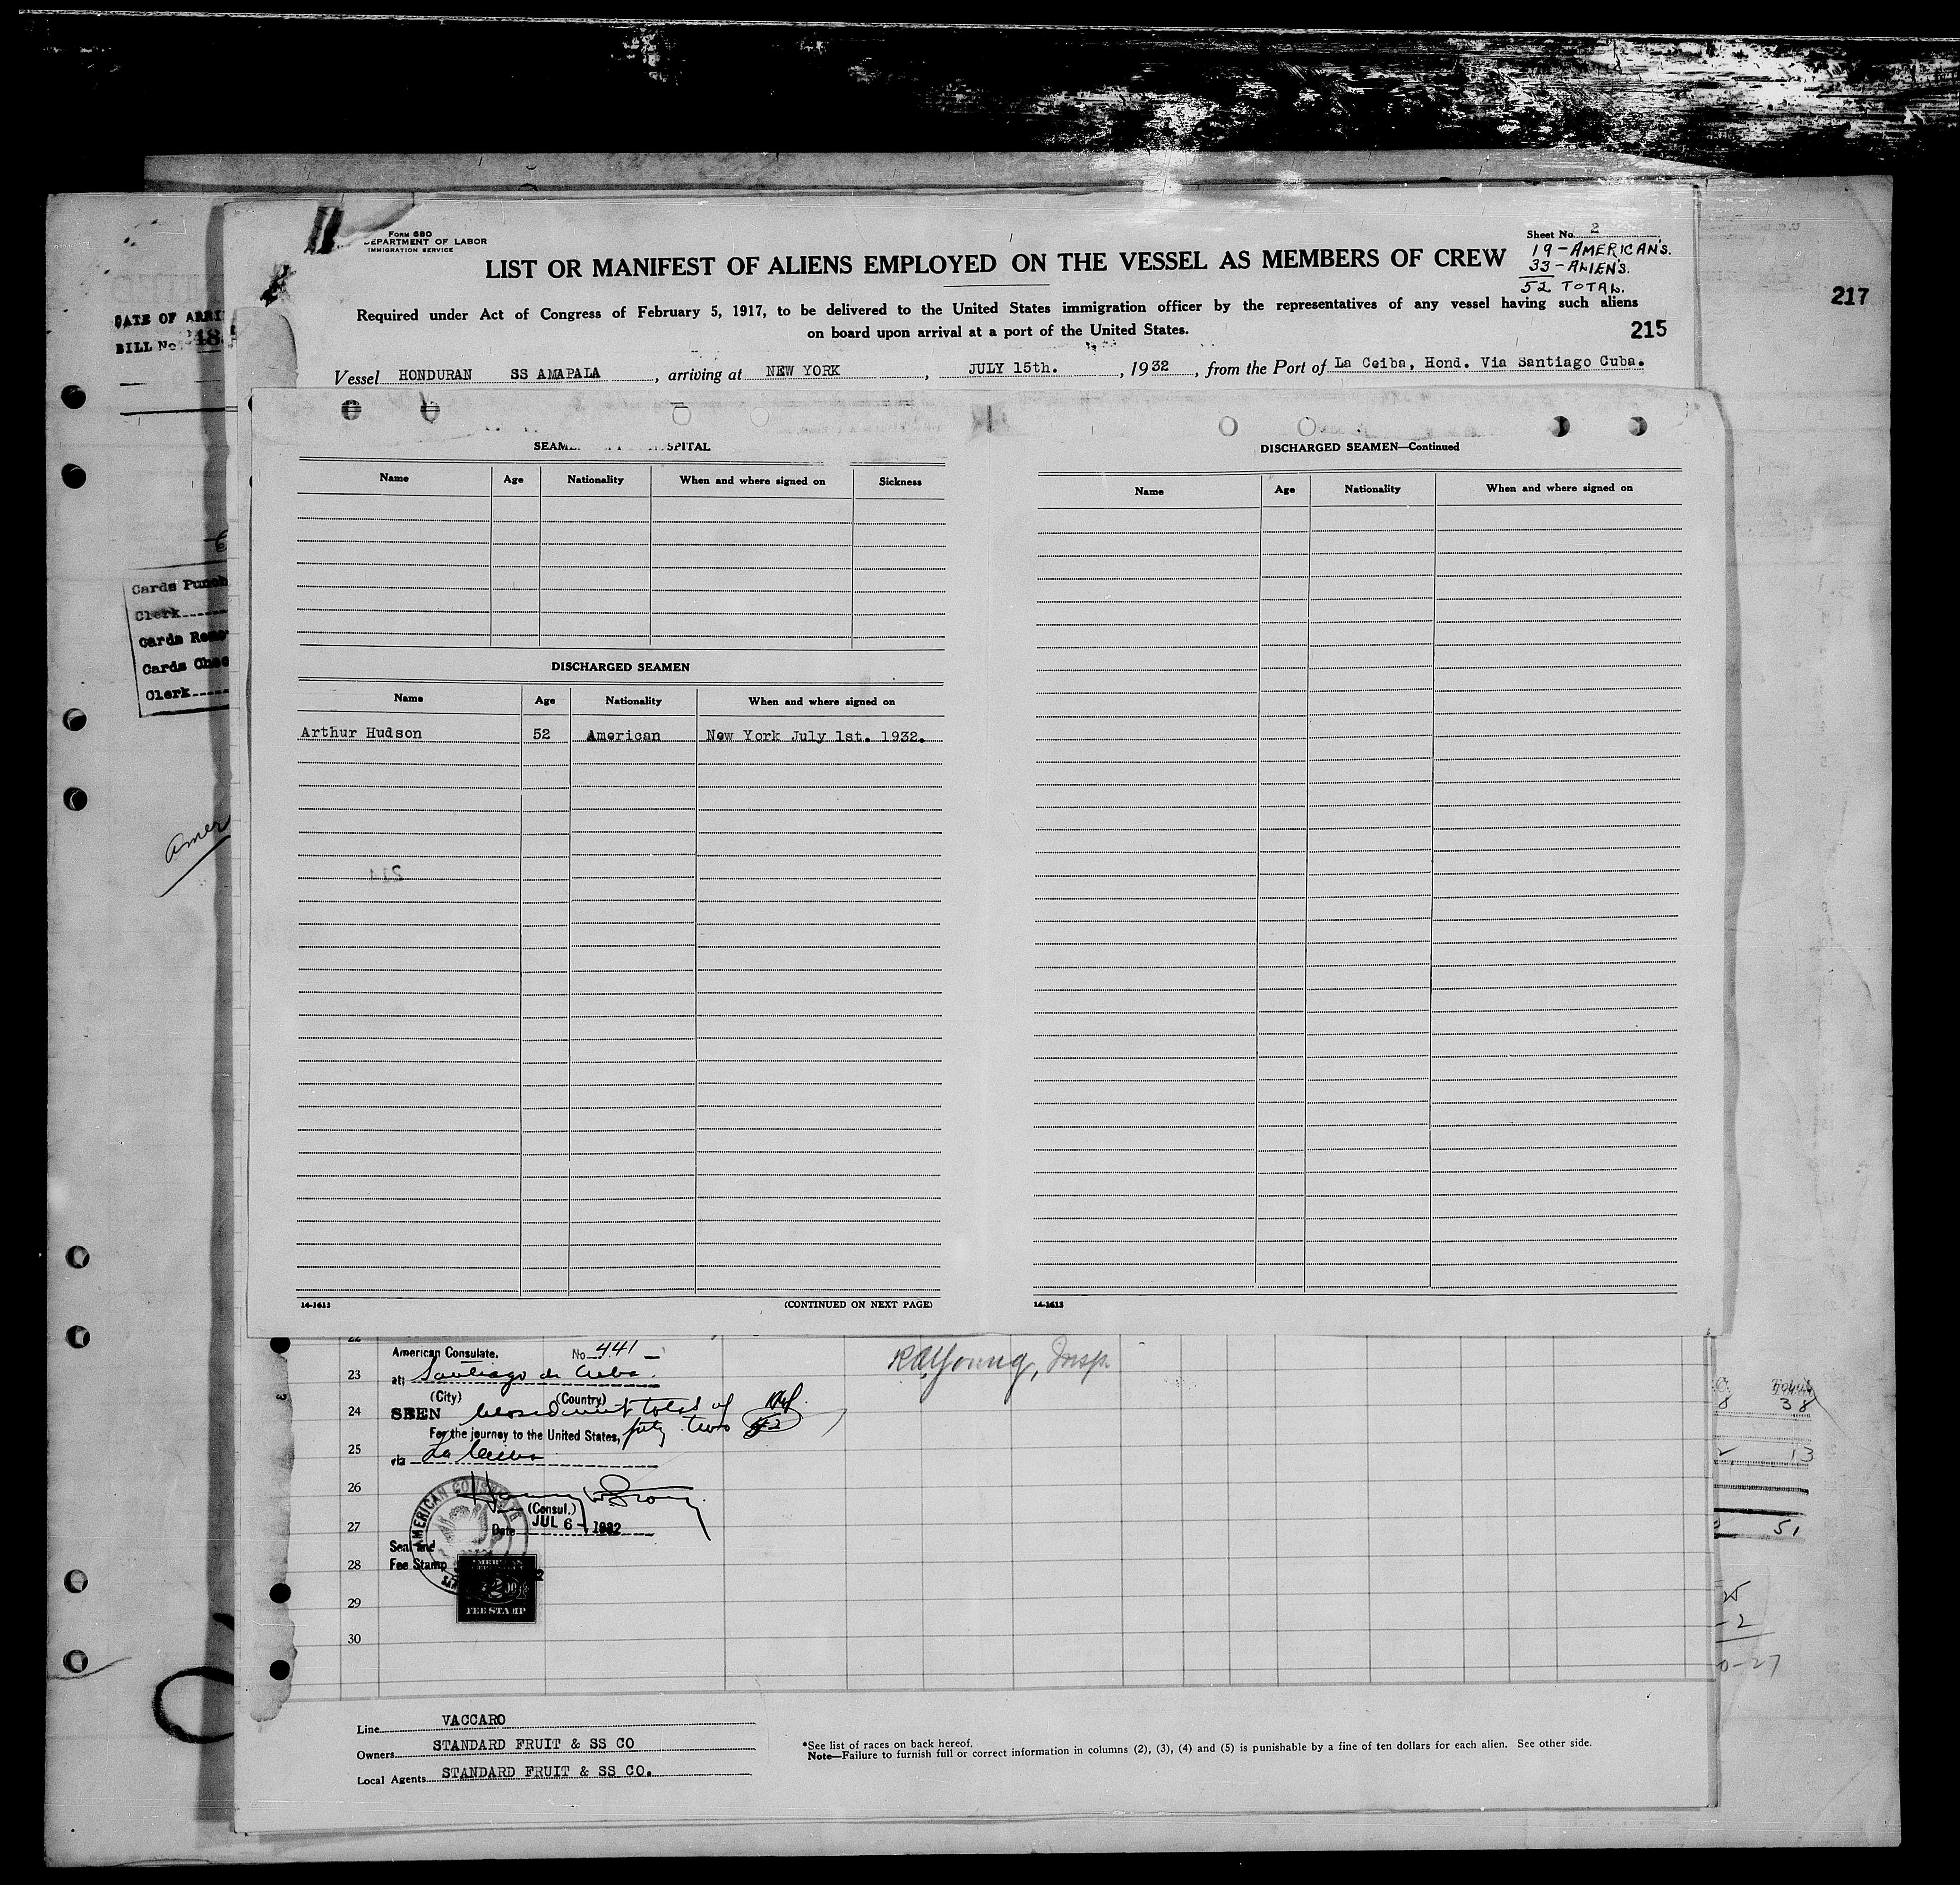 Form 680
DEPARTMENT OF LABOR
IMMIGRATION SERVICE
Sheet No. 2
LIST OR MANIFEST OF ALIENS EMPLOYED ON THE VESSEL AS MEMBERS OF CREW
19 - AMERICAN'S.
33 - ALIEN'S.
52 TOTAL.
Required under Act of Congress of February 5, 1917, to be delivered to the United States immigration officer by the representatives of any vessel having such aliens
on board upon arrival at a port of the United States.
215
217
DATE OF ARRI
BILL No. 48
Vessel HONDURAN SS AMAPALA, arriving at NEW YORK, JULY 15th., 1932, from the Port of La Ceiba, Hond. Via Santiago Cuba.
SEAM SPITAL
Name Age Nationality When and where signed on Sickness
DISCHARGED SEAMEN
Name Age Nationality When and where signed on
Arthur Hudson 52 American New York July 1st. 1932.
14-1613 (CONTINUED ON NEXT PAGE)
DISCHARGED SEAMEN—Continued
Name Age Nationality When and where signed on
14-1613
Cards Punch
Clerk
Cards Remo
Cards Chec
Clerk
Amer
22
23
24
25
26
27
28
29
30
American Consulate. No. 441
at Santiago de Cuba.
(City) (Country)
SEEN total of
For the journey to the United States, fifty two 52
via La Ceiba
(Consul.)
Date JUL 6 - 1932
Seal and
Fee Stamp
AMERICAN CONSULATE
AMERICAN
FEE STAMP
Young, Insp.
Total
8 38
13
51
2
27
Line VACCARO
Owners STANDARD FRUIT & SS CO
Local Agents STANDARD FRUIT & SS CO.
*See list of races on back hereof.
Note—Failure to furnish full or correct information in columns (2), (3), (4) and (5) is punishable by a fine of ten dollars for each alien. See other side.